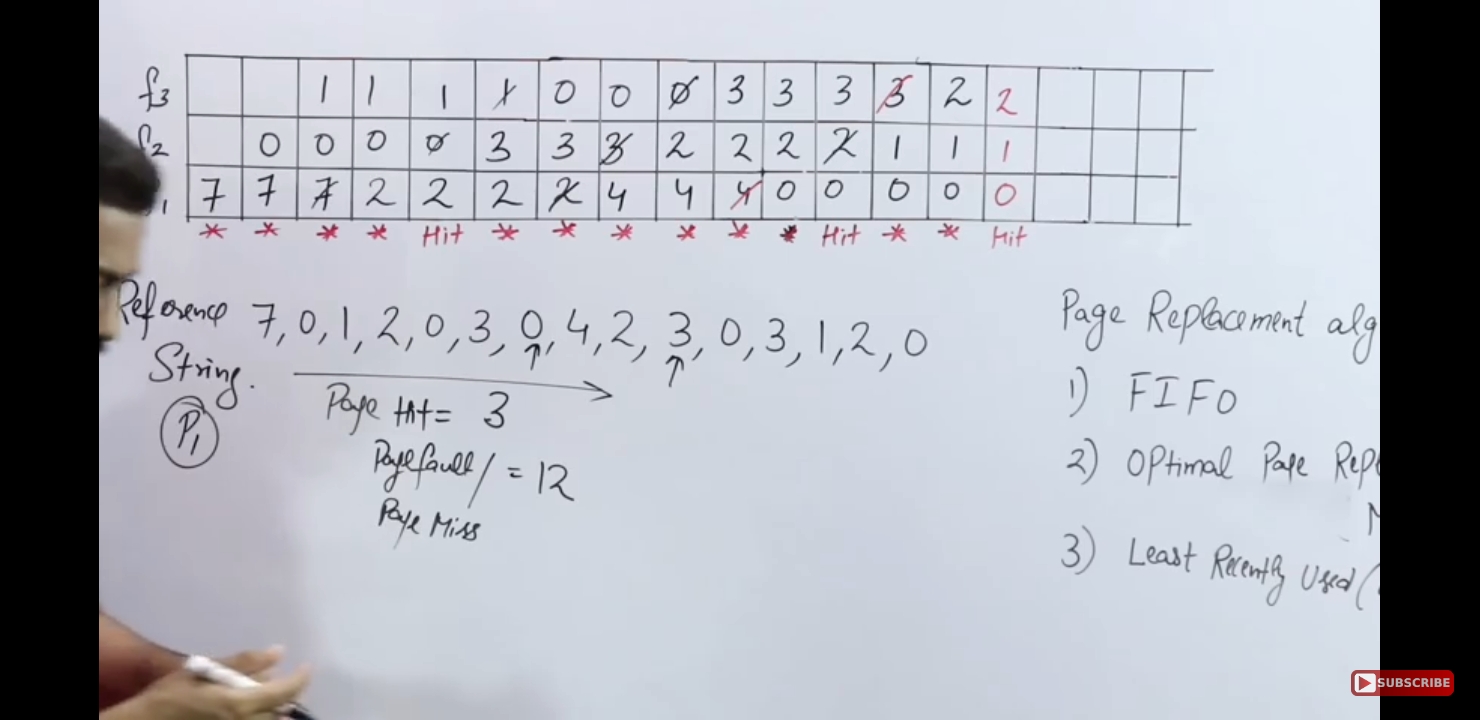 f3 1 1 1 1 0 0 0 3 3 3 3 2 2
f2 0 0 0 0 3 3 3 2 2 2 2 1 1 1
1 7 7 7 2 2 2 2 4 4 4 0 0 0 0 0
* * * * Hit * * * * * * Hit * * Hit
Reference 7, 0, 1, 2, 0, 3, 0, 4, 2, 3, 0, 3, 1, 2, 0
String.
P1
Page Hit = 3
Page fault / = 12
Page Miss
Page Replacement alg
1) FIFO
2) Optimal Page Rep
3) Least Recently Used (
SUBSCRIBE